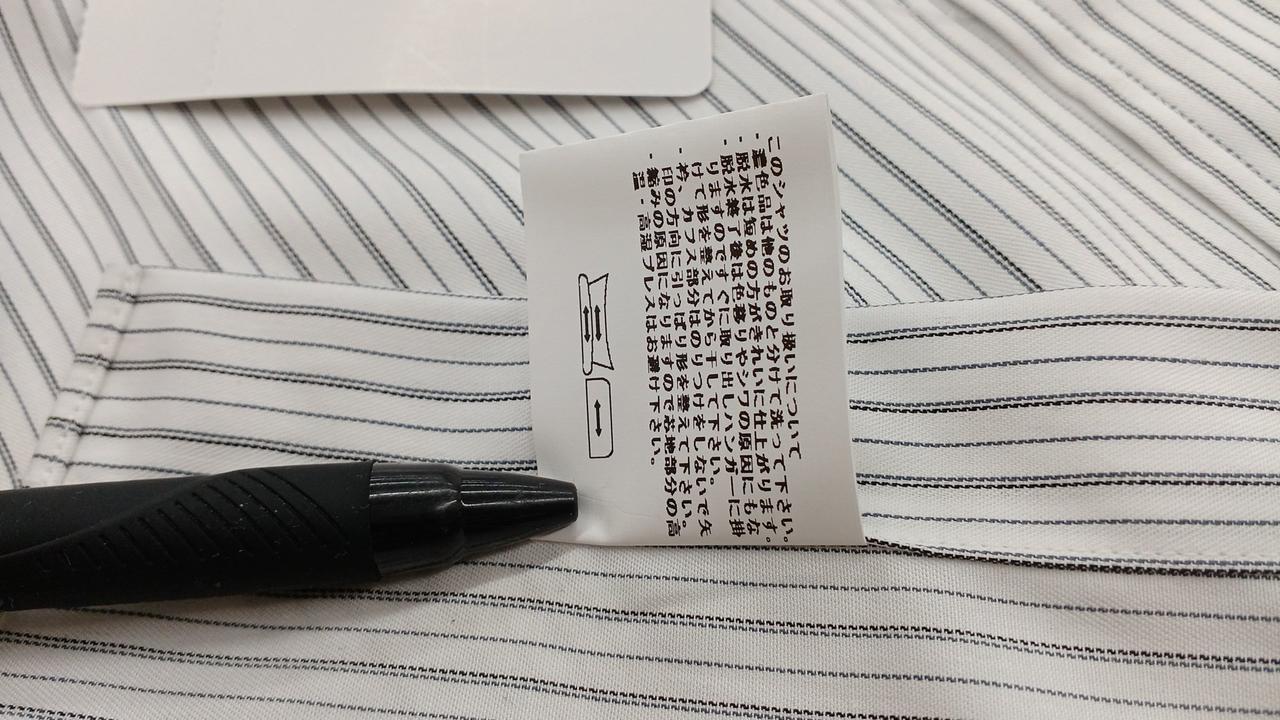 このシャツのお取り扱いについて
・濃色品は他のものと分けて洗って下さい。
・脱水は短めの方がきれいに仕上がります。
・脱水終了後は色移りやシワの原因にもな
りますのですぐに取り出しハンガーに掛
けて形を整えてから干して下さい。
・衿、カフス部分はのりつけをしないで矢
印の方向に引っぱり形を整えて下さい。
・縮みの原因になりますので芯地部分の高
温・高湿プレスはお避け下さい。